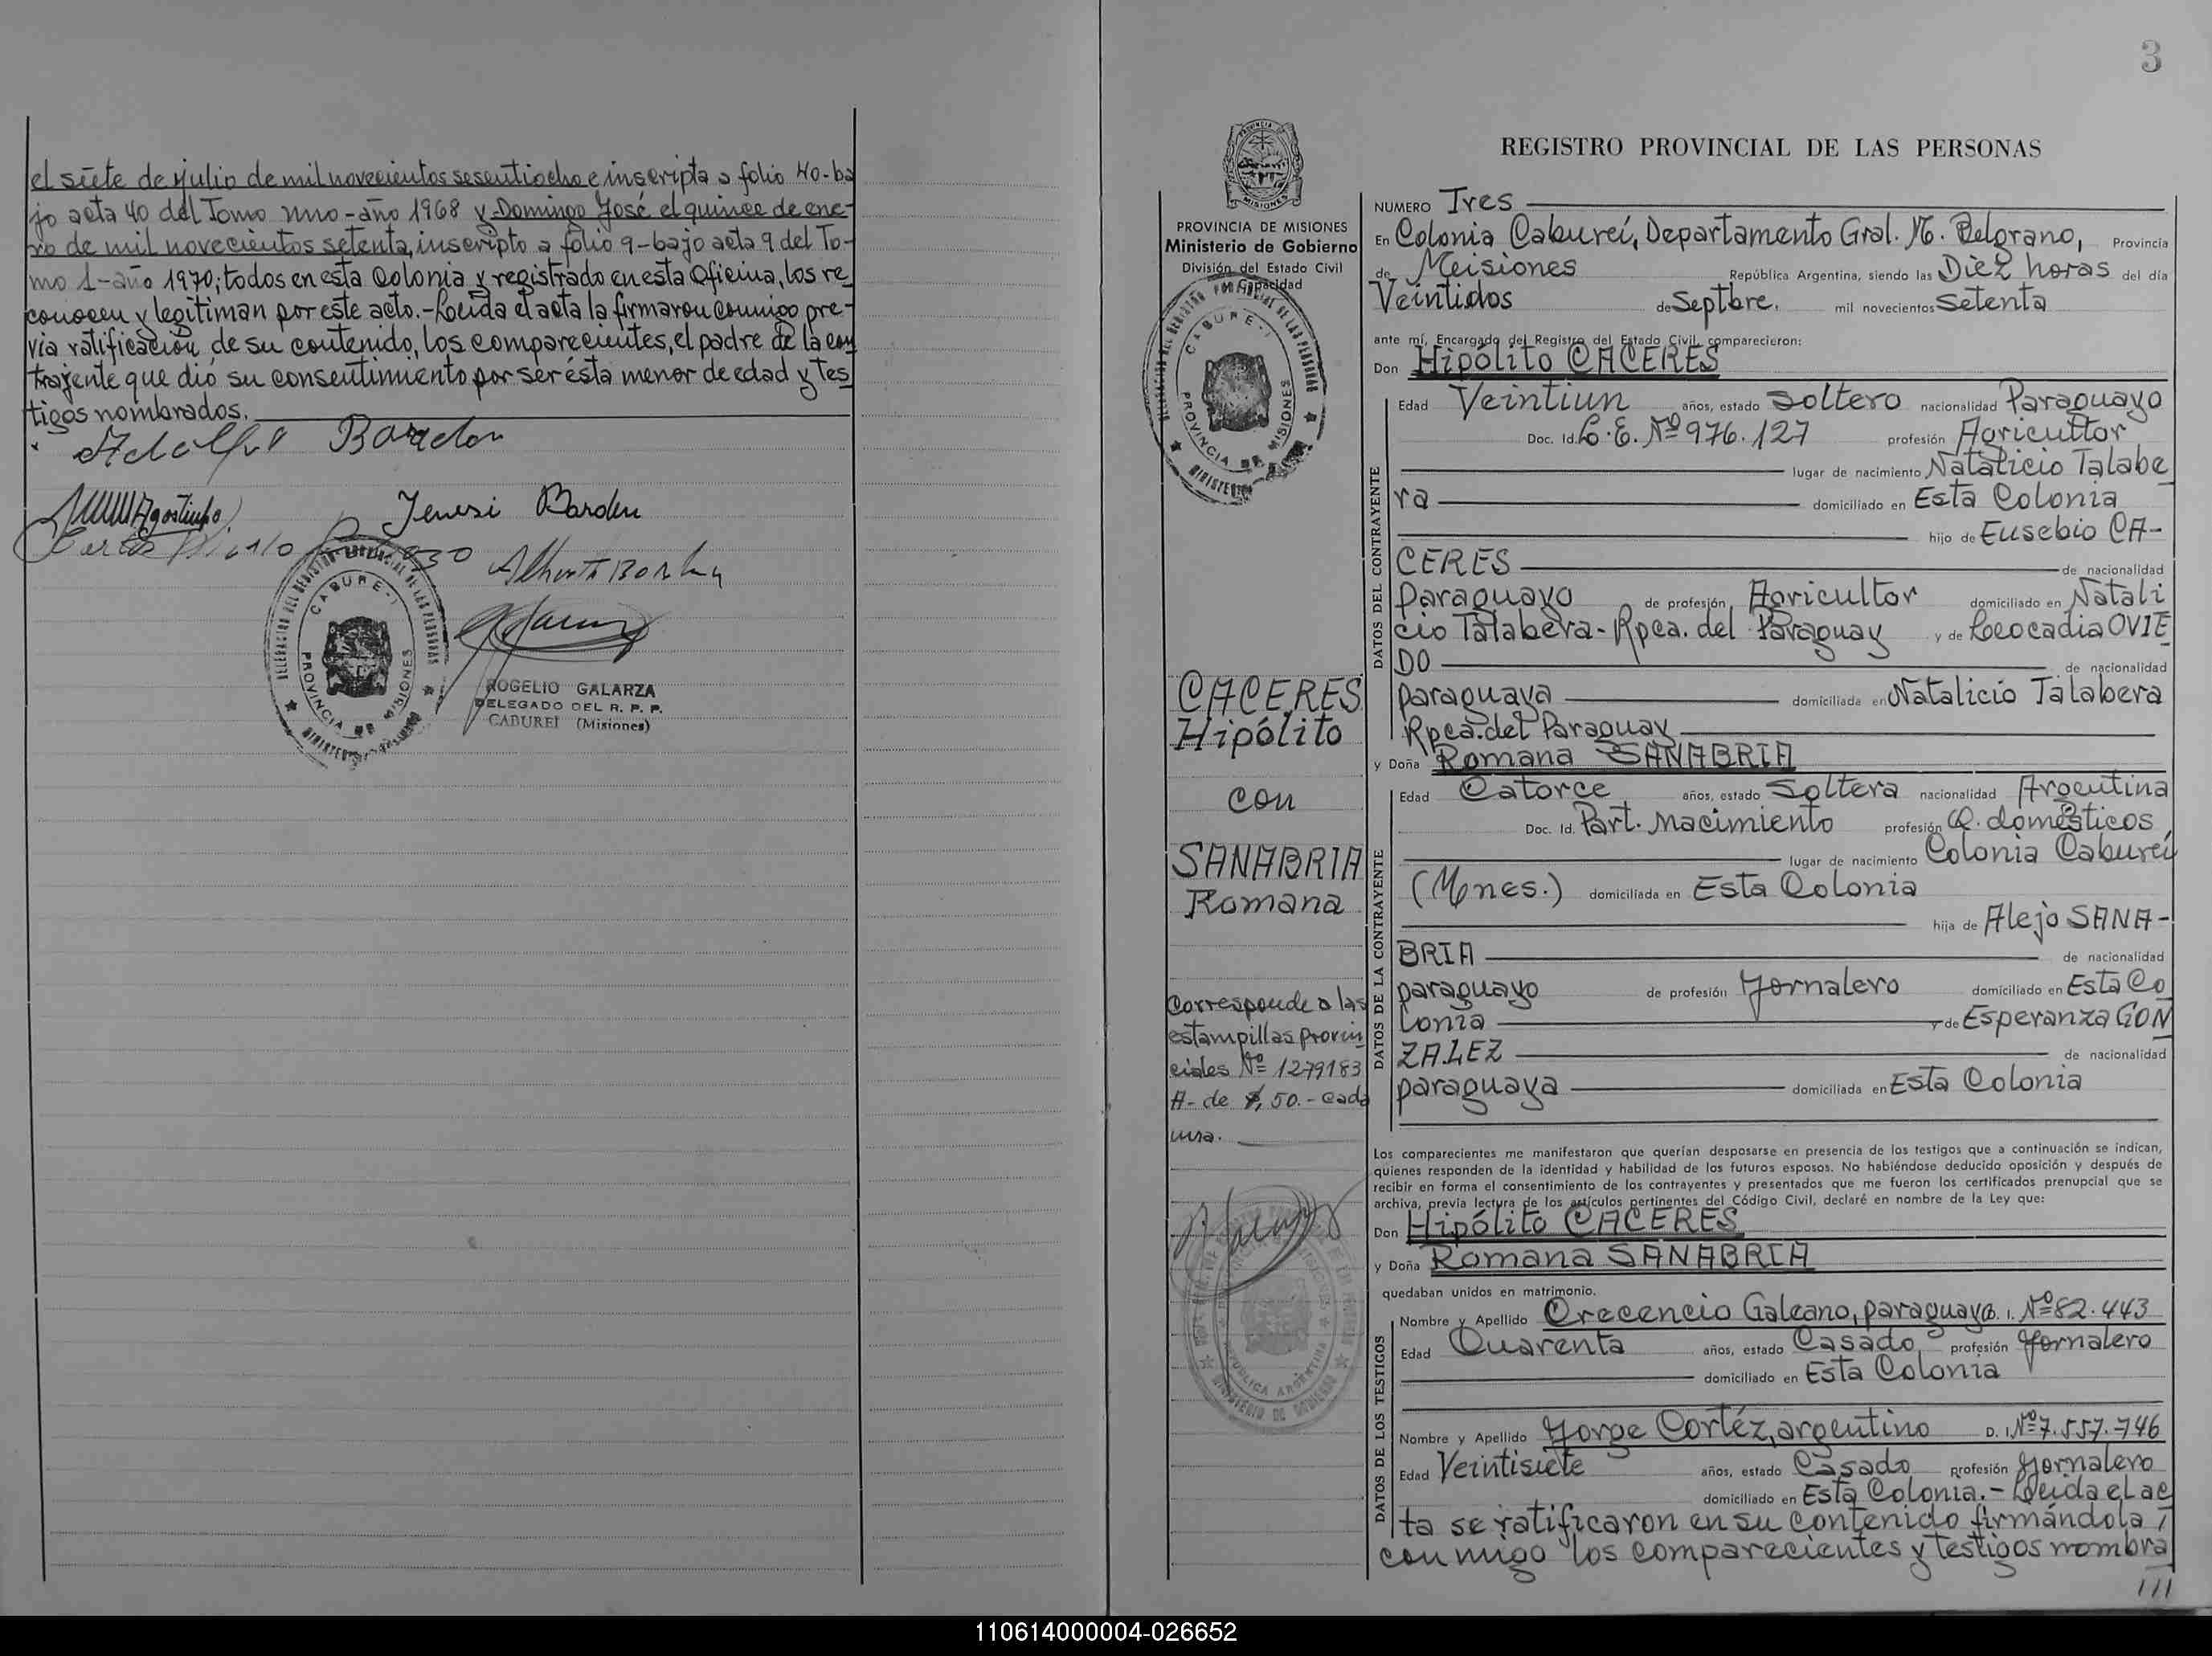 el siete de julio de mil novecientos sesentiocho e inscripta a folio 40-ba
jo acta 40 del Tomo uno-año 1968 y-Domingo José el quince de ene-
ro de mil novecientos setenta, inscripto a folio 9-bajo acta 9 del To-
mo 1-año 1970; todos en esta Colonia y registrado en esta Oficina, los re
conocen y legitiman por este acto.-Leida el acta la firmaron conmigo pre-
via ratificación de su contenido, los comparecientes, el padre de la con
trayente que dió su consentimiento por ser ésta menor de edad y tes
tigos nombrados.
Adolfo
Agostinho
DELEGACION DEL REGISTRO PROVINCIAL DE LAS PERSONAS
CABURE-I
PROVINCIA DE MISIONES
ROGELIO GALARZA
DELEGADO DEL R. P. P.
CABUREI (Misiones)
3
PROVINCIA DE MISIONES
Ministerio de Gobierno
División del Estado Civil
y Capacidad
CABURE-I
PROVINCIA DE MISIONES
CACERES
Hipólito
con
SANABRIA
Romana
Corresponde a las
estampillas provin
ciales Nº 1279183
A- de $, 50.- cada
una.
REPUBLICA ARGENTINA
MINISTERIO DE GOBIERNO
REGISTRO PROVINCIAL DE LAS PERSONAS
NUMERO Tres
En Colonia Cabureí, Departamento Gral. M. Belgrano, Provincia
de Meisiones República Argentina, siendo las Diez horas del día
Veintidos de Septbre. mil novecientos Setenta
ante mí, Encargado del Registro del Estado Civil, comparecieron:
Don Hipólito CACERES
DATOS DEL CONTRAYENTE
Edad Veintiun años, estado Soltero nacionalidad Paraguayo
Doc. Id. C.E. Nº 976.127 profesión Agricultor
lugar de nacimiento Natalicio Talabe
ra domiciliado en Esta Colonia
hijo de Eusebio CA-
CERES de nacionalidad
paraguayo de profesión Agricultor domiciliado en Natali
cio Talabera-Rpca. del Paraguay y de Leocadia OVIE
DO de nacionalidad
paraguaya domiciliada en Natalicio Talabera
Rpca. del Paraguay
y Doña Romana SANABRIA
DATOS DE LA CONTRAYENTE
Edad Catorce años, estado Soltera nacionalidad Argentina
Doc. Id. Part. Nacimiento profesión Q. domésticos
lugar de nacimiento Colonia Cabureí
(Mnes.) domiciliada en Esta Colonia
hija de Alejo SANA-
BRIA de nacionalidad
paraguayo de profesión Jornalero domiciliado en Esta Co
lonia y de Esperanza GON
ZALEZ de nacionalidad
paraguaya domiciliada en Esta Colonia
Los comparecientes me manifestaron que querían desposarse en presencia de los testigos que a continuación se indican,
quienes responden de la identidad y habilidad de los futuros esposos. No habiéndose deducido oposición y después de
recibir en forma el consentimiento de los contrayentes y presentados que me fueron los certificados prenupcial que se
archiva, previa lectura de los artículos pertinentes del Código Civil, declaré en nombre de la Ley que:
Don Hipólito CACERES
y Doña Romana SANABRIA
quedaban unidos en matrimonio.
DATOS DE LOS TESTIGOS
Nombre y Apellido Crecencio Galeano, paraguayo. I. Nº 82.443
Edad Cuarenta años, estado Casado profesión Jornalero
domiciliado en Esta Colonia
Nombre y Apellido Jorge Cortéz, argentino D. I. Nº 7.557.746
Edad Veintisiete años, estado Casado profesión Jornalero
domiciliado en Esta Colonia.-Leida el ac
ta se ratificaron en su contenido firmándola
conmigo los comparecientes y testigos nombra
///
110614000004-026652